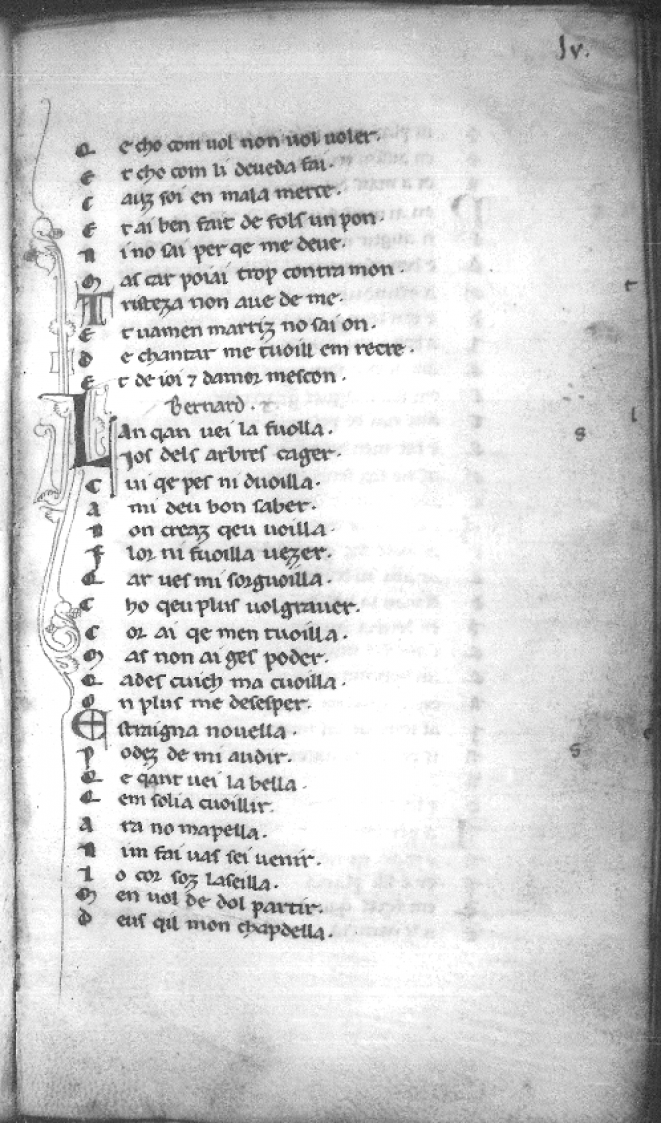 lv.
Q e cho com uol non uol uoler.
E t cho com li deueda fai.
C auz soi en mala merce.
E t ai ben fait de fols un pon.
N i no sai per qe me deue.
M as car poiai trop contra mon.
T risteza non aue de me.
E t uamen martiz no sai on.
D e chantar me tuoill em recre.
E t de ioi 7 damor mescon.
Bernard. 
L An qan uei la fuolla.
Ios dels arbres cager.
C ui qe pes ni duoilla.
A mi deu bon saber.
N on creaz qeu uoilla.
F lor ni fuoilla uezer.
Q ar ues mi sorguoilla.
C ho qeu plus uolgrauer.
C or ai qe men tuoilla.
M as non ai ges poder.
Q ades cuich ma cuoilla.
O n plus me desesper.
E straigna nouella.
P odez de mi audir.
Q e qant uei la bella.
Q em solia cuoillir.
A ra no mapella.
N im fai uas sei uenir.
L o cor soz laseilla.
M en uol de dol partir.
D eus qil mon chapdella.